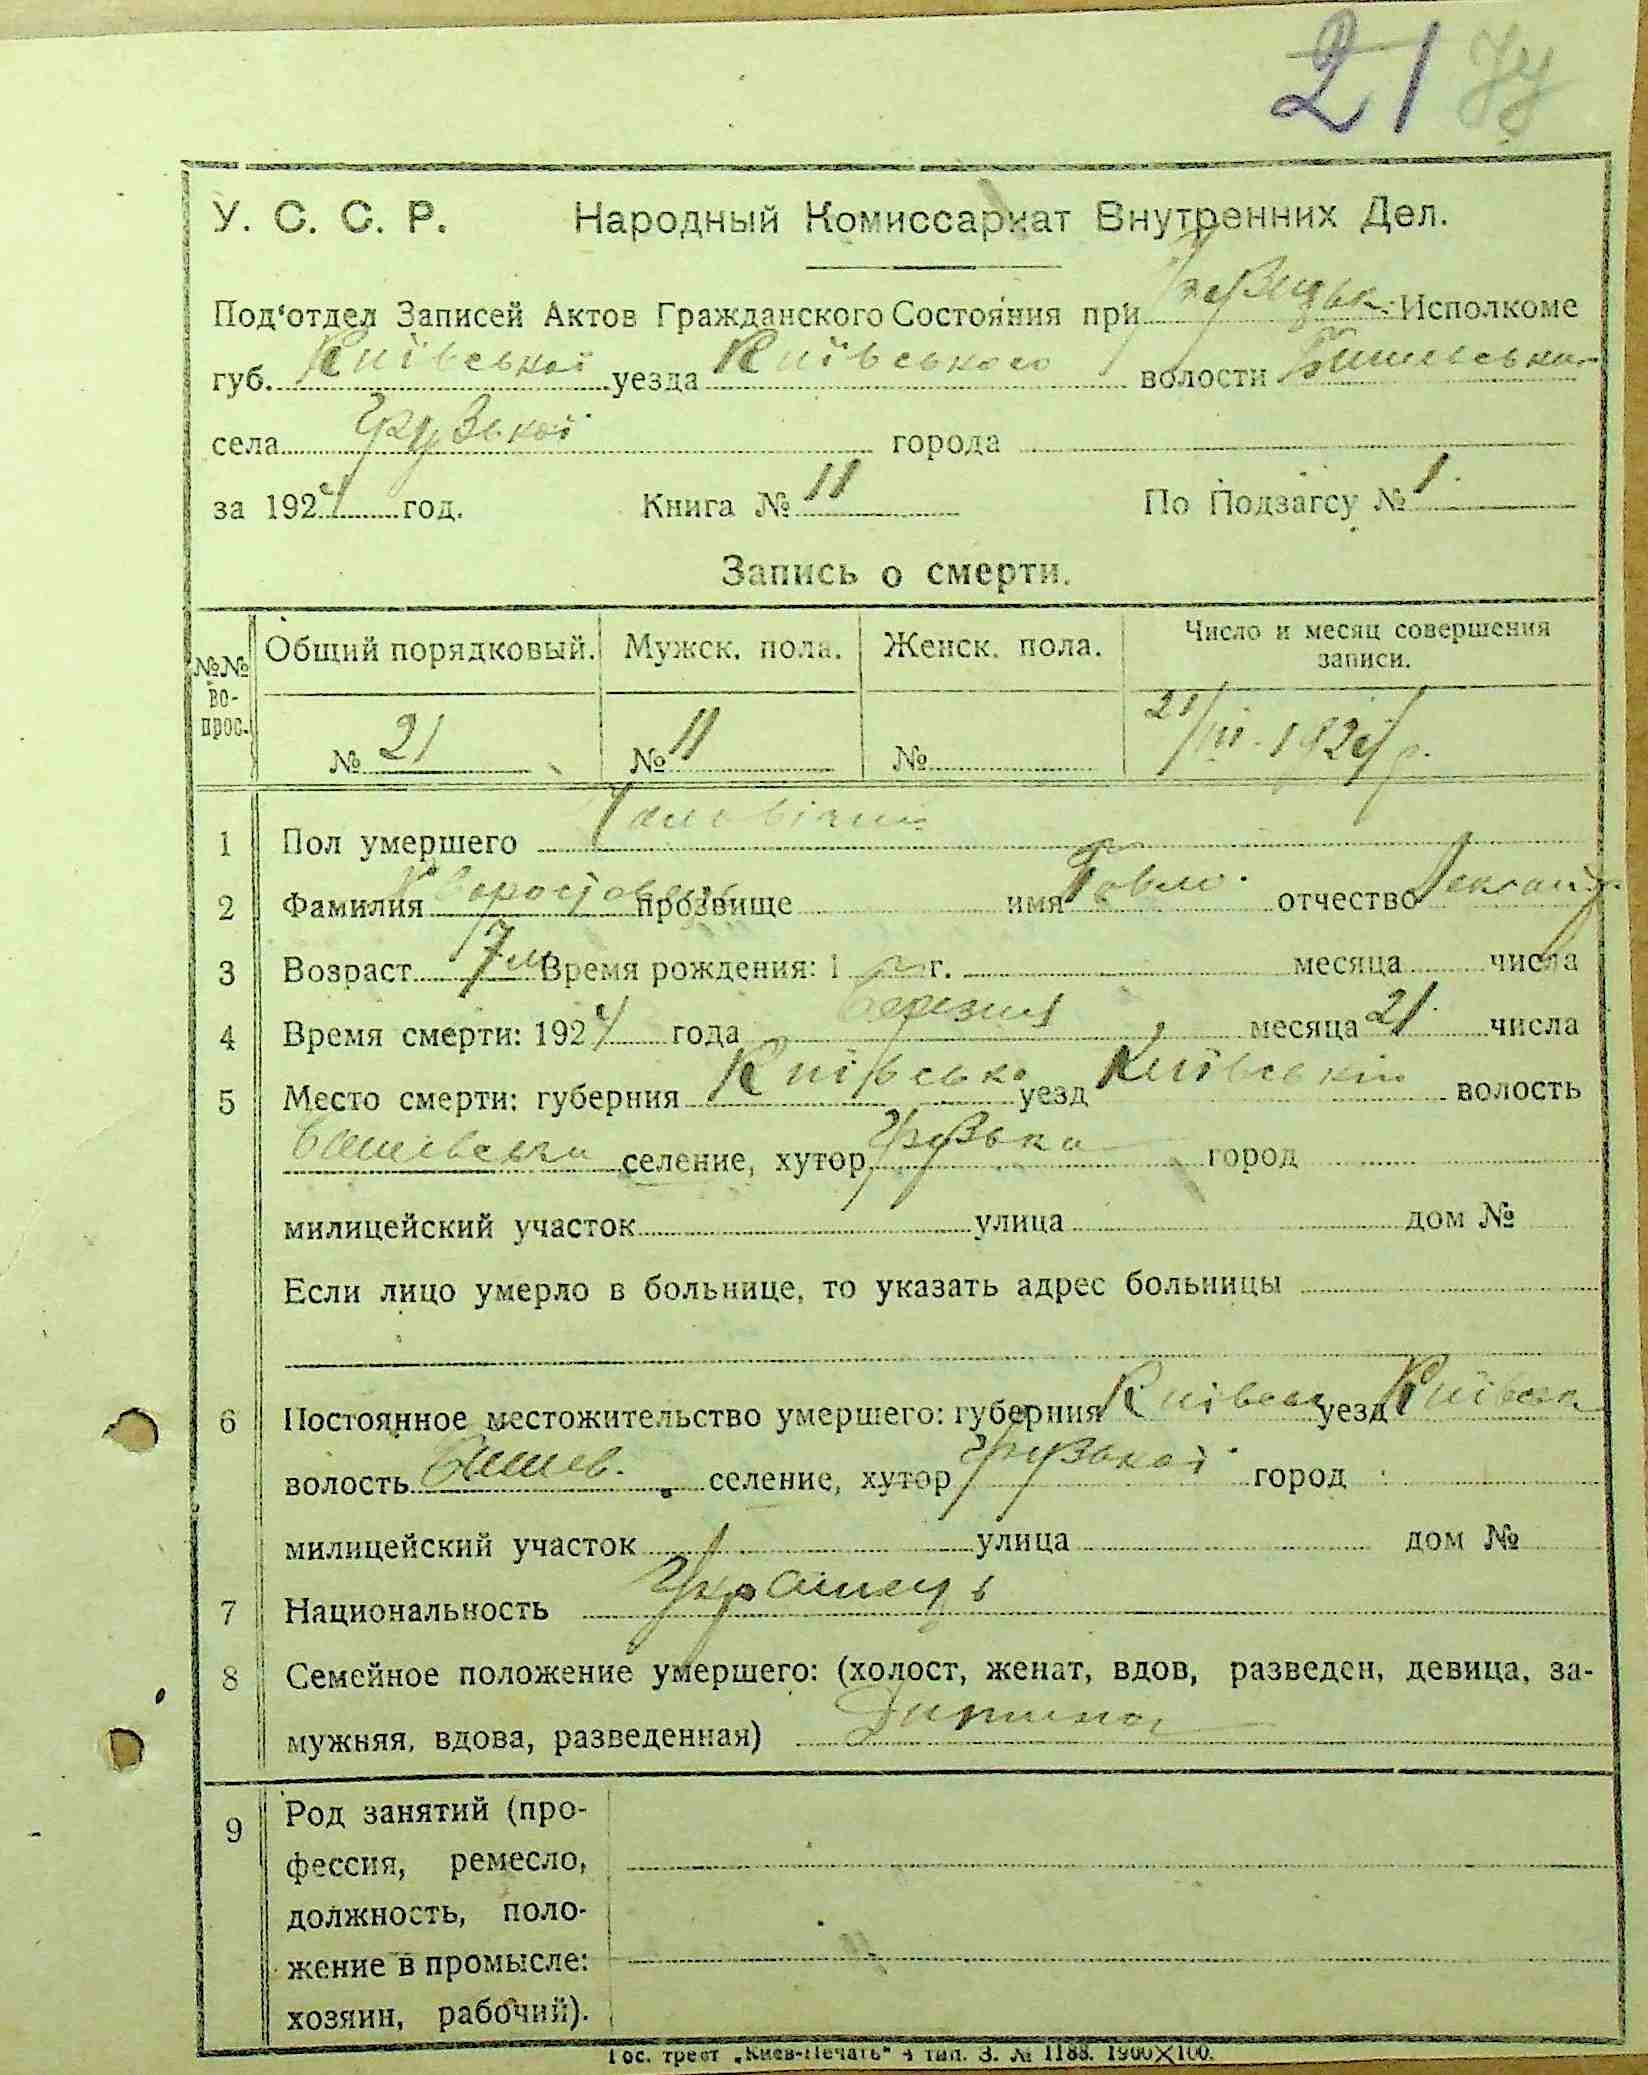 21
У. С. С. Р. Народный Комиссариат Внутренних Дел.
Под'отдел Записей Актов Гражданского Состояния при Грузьцьк. Исполкоме
губ. Київської уезда Київського волости Бишевської
села Грузької города
за 1924 год. Книга № 11 По Подзагсу № 1.
Запись о смерти.
№№ вопрос. Общий порядковый. Мужск. пола. Женск. пола. Число и месяц совершения
записи.
№ 21 № 11 № 21/III. 1924 р.
1 Пол умершего Чоловічий
2 Фамилия прозвище имя Павло. отчество
3 Возраст 7 м Время рождения: 1 г. месяца числа
4 Время смерти: 1924 года березня месяца 21 числа
5 Место смерти: губерния Київська уезд Київський волость
Бишевська селение, хутор Грузька город
милицейский участок улица дом №
Если лицо умерло в больнице, то указать адрес больницы
6 Постоянное местожительство умершего: губерния Київськ уезд Київськ
волость Бишев. селение, хутор Грузької город
милицейский участок улица дом №
7 Национальность Українець
8 Семейное положение умершего: (холост, женат, вдов, разведен, девица, за-
мужняя, вдова, разведенная) Дитина
9 Род занятий (про-
фессия, ремесло,
должность, поло-
жение в промысле:
хозяин, рабочий).
Гос. трест „Киев-Печать" 4 тип. З. № 1188. 1900×100.